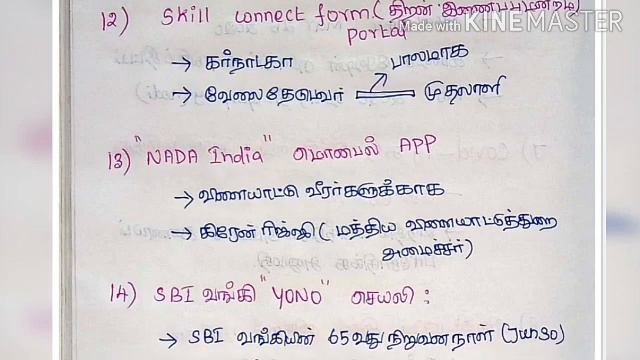 12) Skill connect form (திறன் இணைப்பு மன்றம்)
portal
Made with KINEMASTER
→ கர்நாடகா பாலமாக
→ வேலைதேடுபவர் முதலாளி
13) "NADA India" மொபைல் APP
→ விளையாட்டு வீரர்களுக்காக
→ கிரேன் ரிஜ்ஜு (மத்திய விளையாட்டுத்துறை
அமைச்சர்)
14) SBI வங்கி "YONO" செயலி :
→ SBI வங்கியின் 65வது நிறுவன நாள் (July 30)